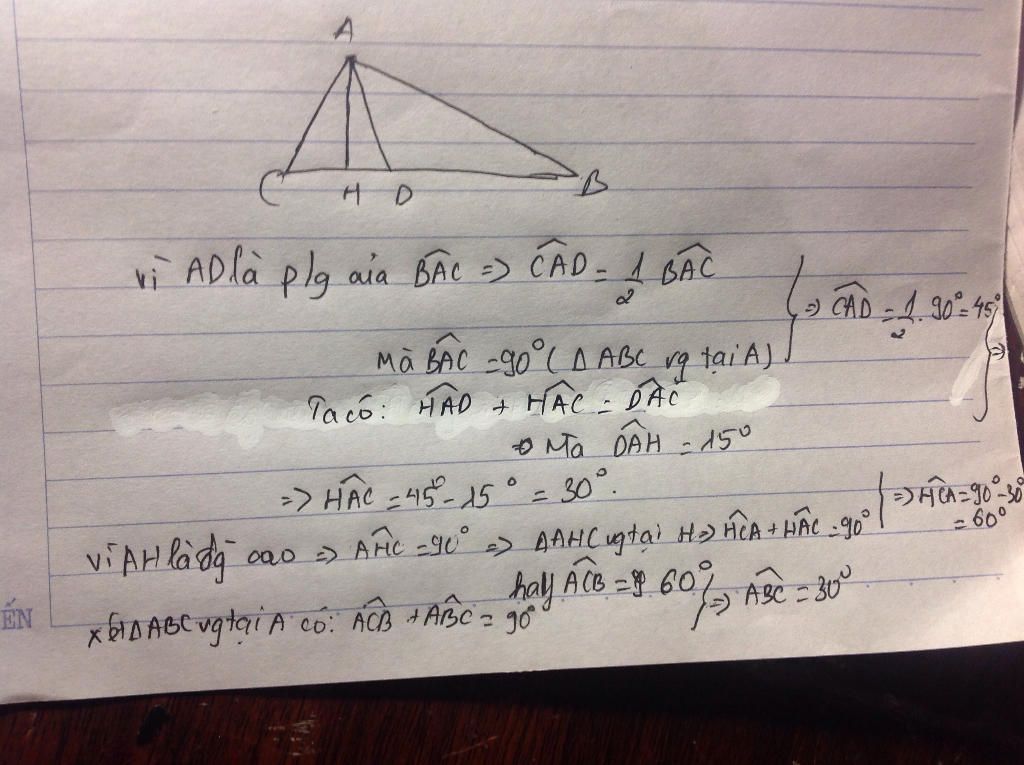 A
C H D B
vì AD là p/g của BAC => CAD = 1/2 BAC
=> CAD = 1/2 . 90° = 45° =>
Mà BAC = 90° ( Δ ABC vg tại A )
Ta có: HAD + HAC = DAC
Mà DAH = 15°
=> HAC = 45° - 15° = 30°.
vì AH là đg cao => AHC = 90° => ΔAHC vg tại H => HCA + HAC = 90°
=> HCA = 90° - 30°
= 60°
hay ACB = 60°
xét ΔABC vg tại A có: ACB + ABC = 90°
=> ABC = 30°
ẾN